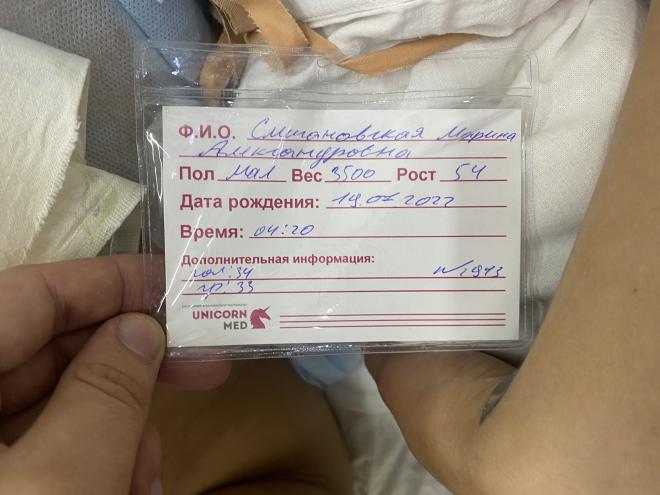 Ф.И.О. Сметановская Марина
Александровна
Пол мал Вес 3500 Рост 54
Дата рождения: 19.07.2022
Время: 04:20
Дополнительная информация:
гол: 34 №2943
гр: 33
UNICORN
MED